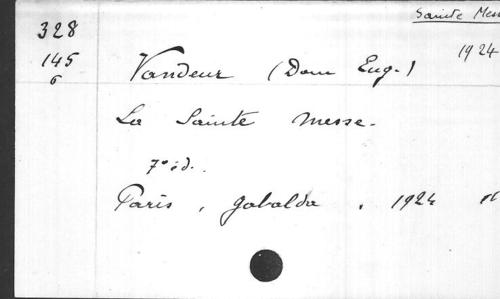 Sainte Mess
328
145
6
1924
Vandeur (Dom Eug.)
La Sainte Messe.
7° éd.
Paris, Gabalda, 1924